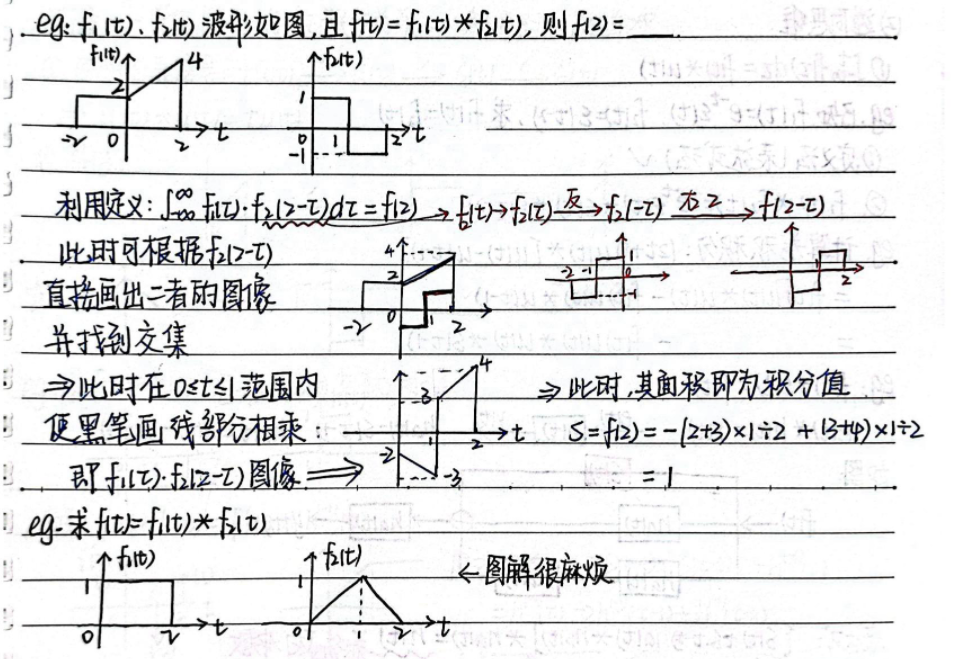 eg: f₁(t)、f₂(t) 波形如图,且 f(t)=f₁(t)*f₂(t), 则 f(2)=____.
f₁(t) 4 f₂(t)
2 1
-2 0 2 t 0 1 2 t
-1
利用定义: ∫₋∞^∞ f₁(τ)·f₂(2-τ)dτ=f(2) → f₂(t)→f₂(τ) 反→ f₂(-τ) 右2→ f(2-τ)
此时可根据f₂(2-τ)
直接画出二者的图像
并找到交集
4 2 -2 0 1 2
-2 -1 0 1 -1
1 2
⇒此时在 0≤t≤1 范围内
便黑笔画线部分相乘
即 f₁(τ)·f₂(2-τ) 图像 ⟹
4 -3 1 2 t -2 -3
⇒ 此时,其面积即为积分值
S=f(2)=-(2+3)×1÷2 +(3+4)×1÷2
=1
eg. 求 f(t)=f₁(t)*f₂(t)
f₁(t) f₂(t) ←图解很麻烦
1 1
0 2 t 0 1 2 t